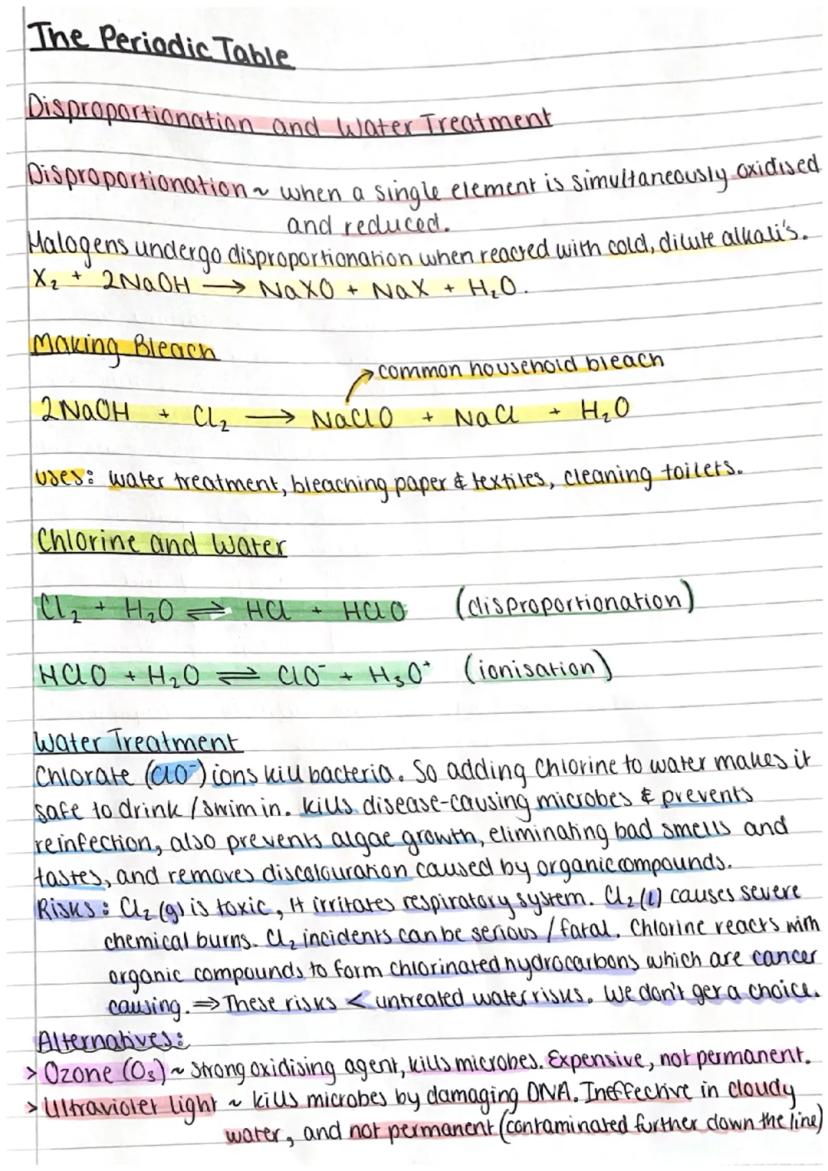 The Periodic Table
Disproportionation and Water Treatment
Disproportionation ~ when a single element is simultaneously oxidised
and reduced.
Halogens undergo disproportionation when reacted with cold, dilute alkali's.
X₂ + 2NaOH → NaXO + NaX + H₂O.
Making Bleach
common household bleach
2NaOH + Cl₂ → NaClO + NaCl + H₂O
uses: water treatment, bleaching paper & textiles, cleaning toilets.
Chlorine and Water
Cl₂ + H₂O ⇌ HCl + HClO (disproportionation)
HClO + H₂O ⇌ ClO⁻ + H₃O⁺ (ionisation)
Water Treatment
Chlorate (ClO⁻) ions kill bacteria. So adding Chlorine to water makes it
safe to drink / swim in. kills disease-causing microbes & prevents
reinfection, also prevents algae growth, eliminating bad smells and
tastes, and removes discolouration caused by organic compounds.
Risks: Cl₂ (g) is toxic, it irritates respiratory system. Cl₂ (l) causes severe
chemical burns. Cl₂ incidents can be serious / fatal. Chlorine reacts with
organic compounds to form chlorinated hydrocarbons which are cancer
causing. ⇒ These risks < untreated water risks. We don't get a choice.
Alternatives:
> Ozone (O₃) ~ strong oxidising agent, kills microbes. Expensive, not permanent.
> Ultraviolet light ~ kills microbes by damaging DNA. Ineffective in cloudy
water, and not permanent (contaminated further down the line)